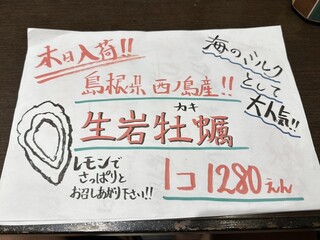 本日入荷!!
海のミルク
として
大人気!!
島根県 西ノ島産!!
カキ
生岩牡蠣
レモンで
さっぱりと
お召しあがり下さい!!
1コ 1280えん